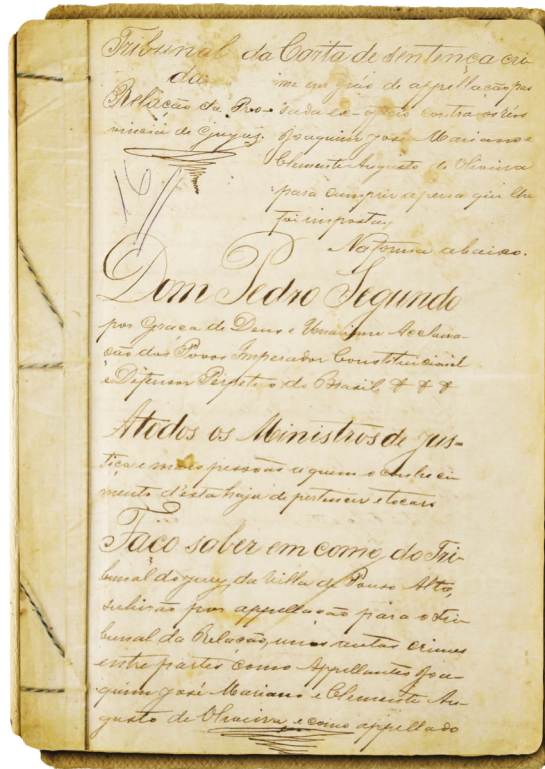 Tribunal da
Relação da Pro-
vincia de Goyaz.
16
Carta de sentença cri-
me em gráo de appellação pas
sada ex-officio contra os réos
Joaquim José Mariano e
Clemente Augusto de Oliveira
para cumprir a pena que lhe
foi imposta,
Na forma abaixo.
Dom Pedro Segundo
por Graça de Deus e Unanime Acclama-
ção dos Povos Imperador Constitucional
e Defensor Perpetuo do Brasil & & &
A todos os Ministros de Jus-
tiça e mais pessôas a quem o conheci
mento d'esta haja de pertencer e tocar.
Faço saber em como do Tri-
bunal do jury da Villa de Pouso Alto,
subirão por appellação para o Tri
bunal da Relação, uns autos crimes
entre partes como Appellantes Joa-
quim José Mariano e Clemente Au-
gusto de Oliveira e como appellado